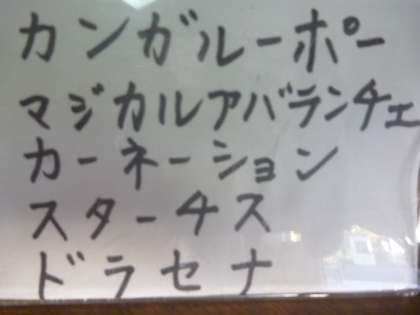 カンガルーポー
マジカルアバランチェ
カーネーション
スターチス
ドラセナ